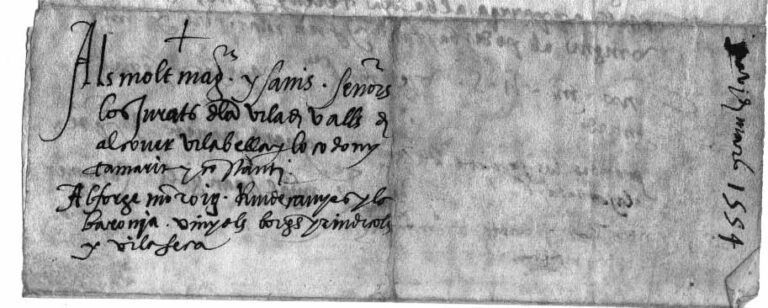 Als molt mag.cs y savis senors
los Jurats dla vila d valls d
alcover vilabella y lo codony
tamarit y costanti
Alforge mo roig Riudecanyes y la
baronia vinyols borges y riudecols
y vilaseca
març 1554